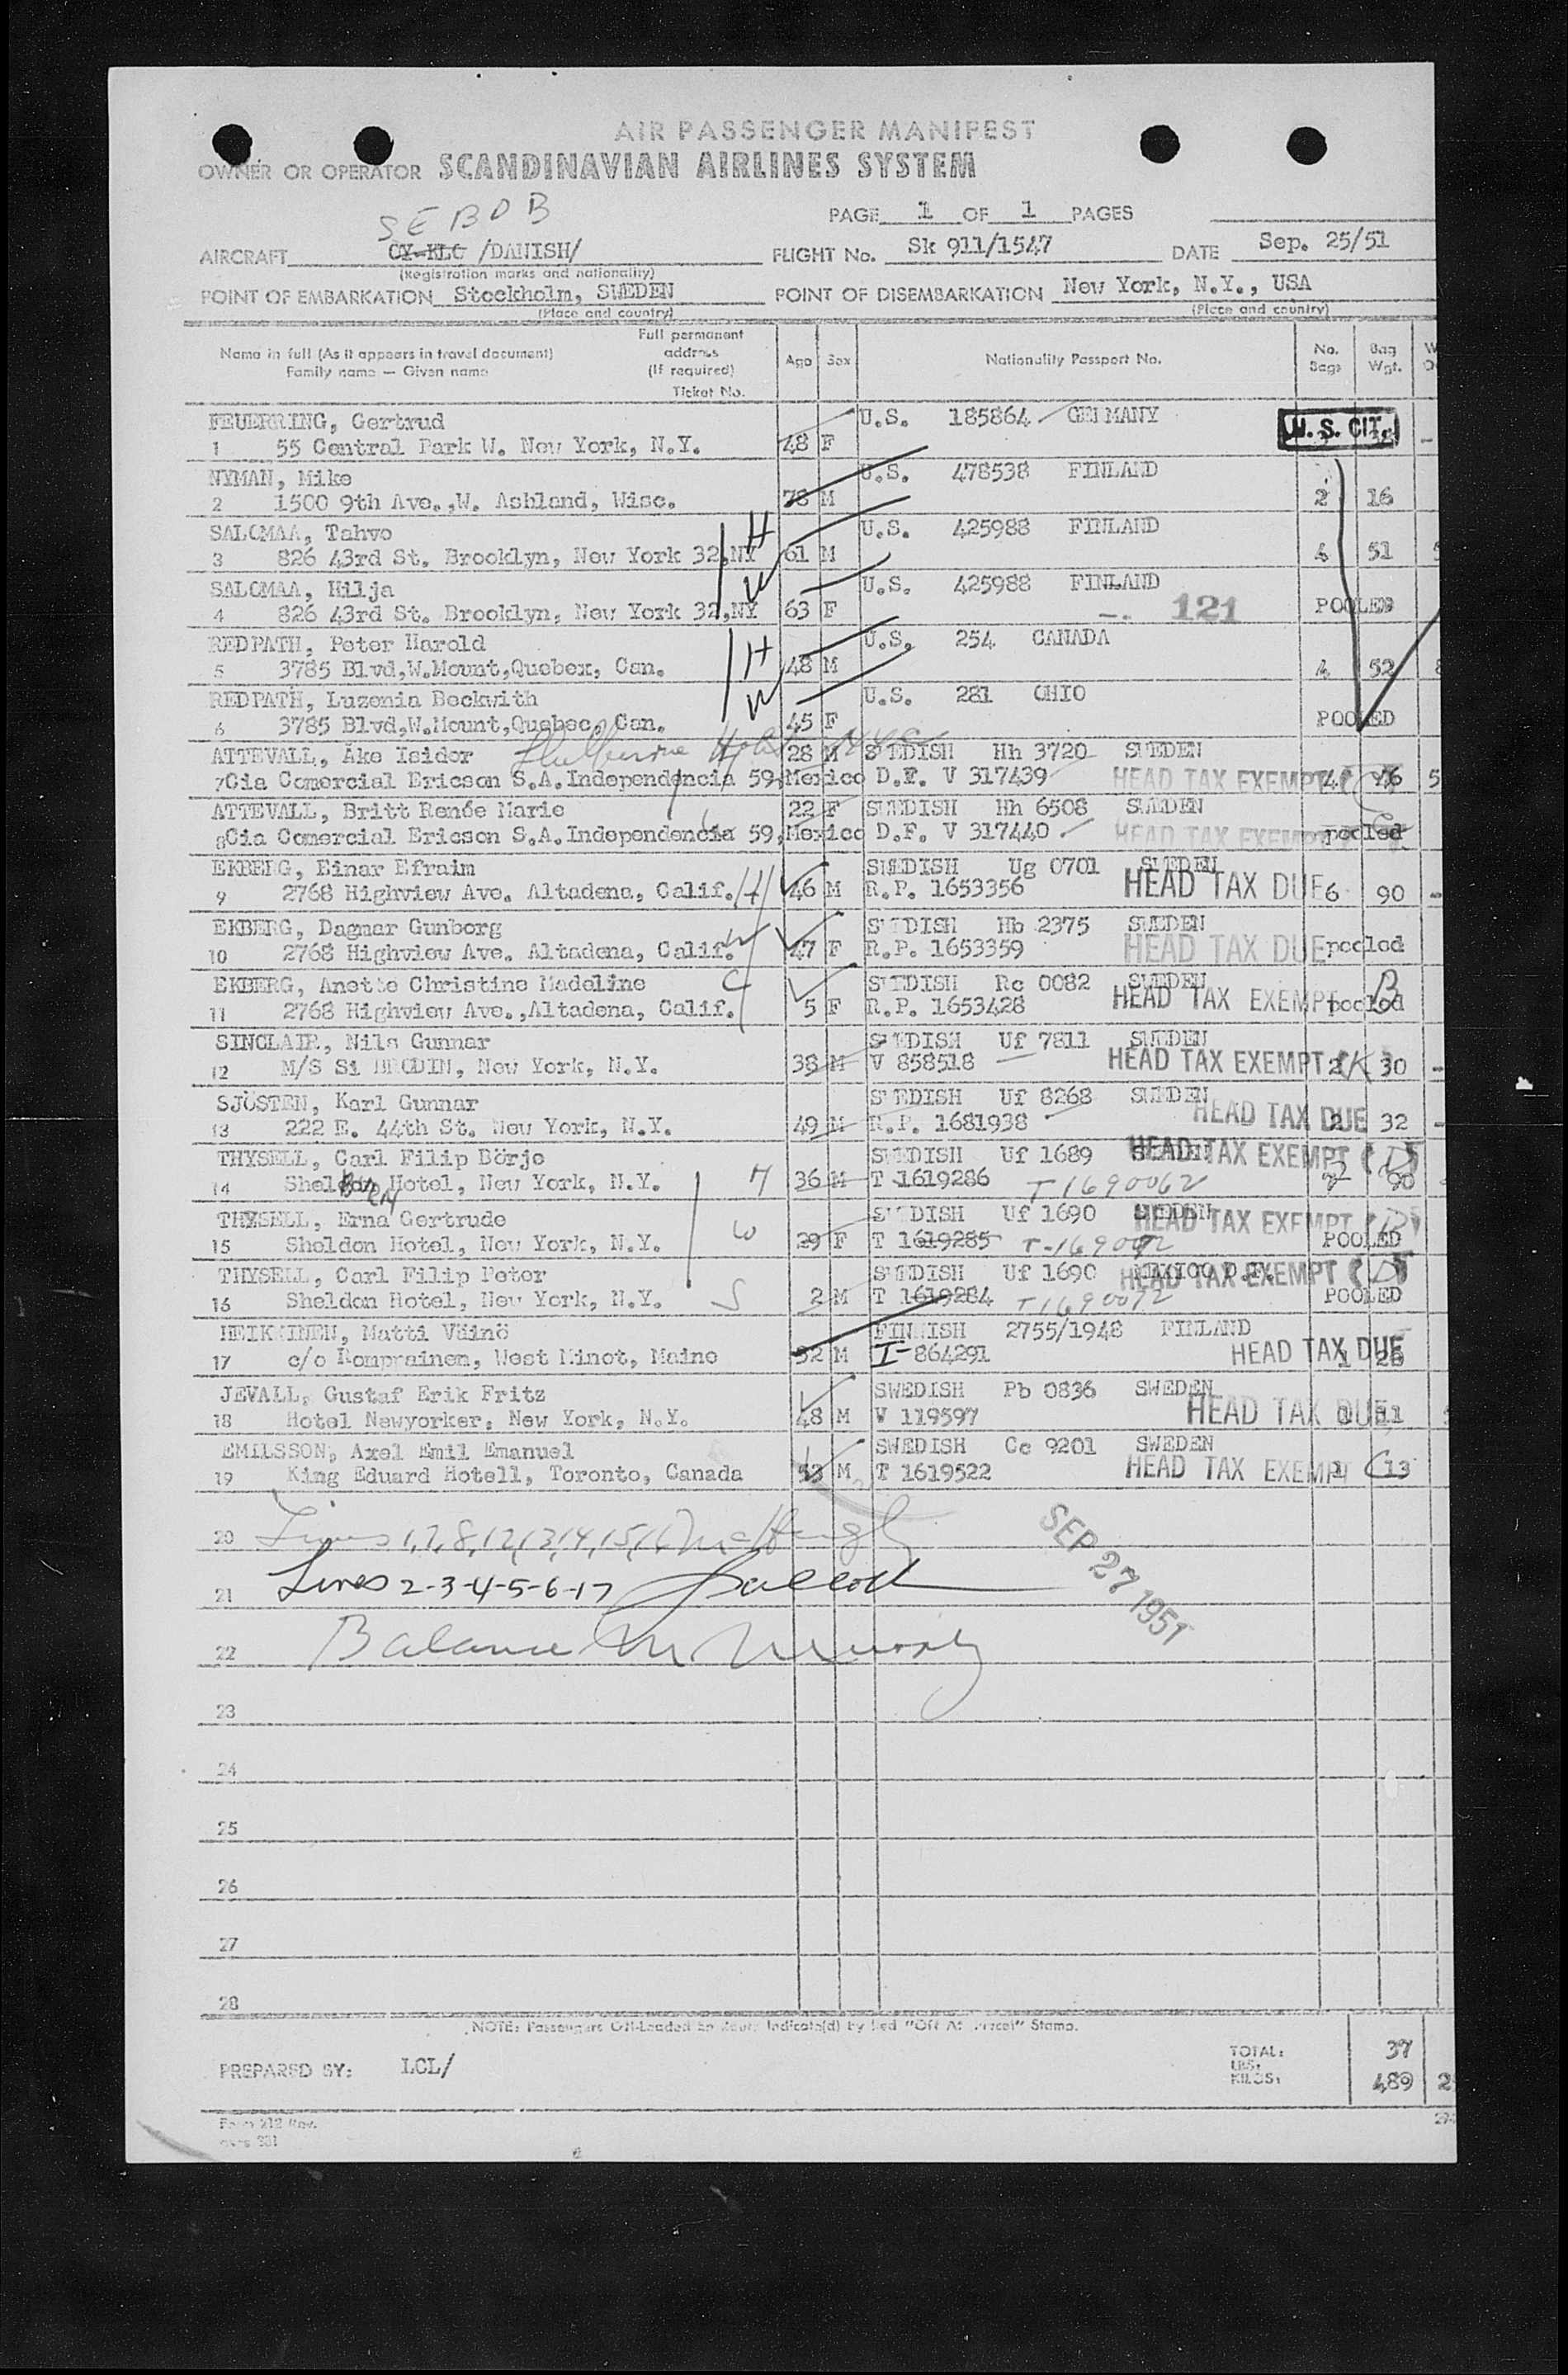 AIR PASSENGER MANIFEST
OWNER OR OPERATOR SCANDINAVIAN AIRLINES SYSTEM
SEBDB
PAGE 1 OF 1 PAGES
AIRCRAFT OY-KLC /DANISH/ FLIGHT No. Sk 911/1547 DATE Sep. 25/51
(Registration marks and nationality)
POINT OF EMBARKATION Stockholm, SWEDEN POINT OF DISEMBARKATION New York, N.Y., USA
(Place and country) (Place and country)
Name in full (As it appears in travel document) Family name — Given name Full permanent address (If required) Ticket No. Age Sex Nationality Passport No. No. Bags Bag Wgt.
FEUERRING, Gertrud U.S. 185864 GERMANY U.S. CIT.
1 55 Central Park W. New York, N.Y. 48 F
NYMAN, Mike U.S. 478538 FINLAND
2 1500 9th Ave.,W. Ashland, Wisc. 78 M 2 16
SALOMAA, Tahvo H U.S. 425988 FINLAND
3 826 43rd St. Brooklyn, New York 32,NY 61 M 4 51
SALOMAA, Hilja W U.S. 425988 FINLAND
4 826 43rd St. Brooklyn, New York 32,NY 63 F 121 POOLED
REDPATH, Peter Harold H U.S. 254 CANADA
5 3785 Blvd,W.Mount,Quebex, Can. 48 M 4 52
REDPATH, Luzenia Beckwith W U.S. 281 OHIO
6 3785 Blvd,W.Mount,Quebec, Can. 45 F POOLED
ATTEVALL, Åke Isidor Hotel NYC 28 M SWEDISH Hh 3720 SWEDEN
7 Cia Comercial Ericson S.A.Independencia 59,Mexico D.F. V 317439 HEAD TAX EXEMPT 4 46 5
ATTEVALL, Britt Renée Marie 22 F SWEDISH Hh 6508 SWEDEN
8 Cia Comercial Ericson S.A.Independencia 59,Mexico D.F. V 317440 HEAD TAX EXEMPT pooled
EKBERG, Einar Efraim SWEDISH Ug 0701 SWEDEN
9 2768 Highview Ave. Altadena, Calif. H 46 M R.P. 1653356 HEAD TAX DUE 6 90
EKBERG, Dagmar Gunborg SWEDISH Hb 2375 SWEDEN
10 2768 Highview Ave. Altadena, Calif. W 47 F R.P. 1653359 HEAD TAX DUE pooled
EKBERG, Anette Christine Madeline C SWEDISH Rc 0082 SWEDEN B
11 2768 Highview Ave.,Altadena, Calif. 5 F R.P. 1653428 HEAD TAX EXEMPT pooled
SINCLAIR, Nils Gunnar SWEDISH Uf 7811 SWEDEN
12 M/S Si BRODIN, New York, N.Y. 38 M V 858518 HEAD TAX EXEMPT 2 K 30
SJÖSTEN, Karl Gunnar SWEDISH Uf 8268 SWEDEN
13 222 E. 44th St. New York, N.Y. 49 M R.P. 1681938 HEAD TAX DUE 2 32
THYSELL, Carl Filip Börje SWEDISH Uf 1689 SWEDEN HEAD TAX EXEMPT (D)
14 Shelburn Hotel, New York, N.Y. H 36 M T 1619286 T1690062 90
THYSELL, Erna Gertrude SWEDISH Uf 1690 SWEDEN HEAD TAX EXEMPT (D)
15 Sheldon Hotel, New York, N.Y. W 29 F T 1619285 POOLED
THYSELL, Carl Filip Peter SWEDISH Uf 1690 MEXICO D.F. HEAD TAX EXEMPT (D)
16 Sheldon Hotel, New York, N.Y. S 2 M T 1619284 T1690072 POOLED
HEIKKINEN, Matti Väinö FINNISH 2755/1948 FINLAND
17 c/o Romprainen, West Minot, Maine 32 M I-864291 HEAD TAX DUE 1 28
JEVALL, Gustaf Erik Fritz SWEDISH Pb 0836 SWEDEN
18 Hotel Newyorker, New York, N.Y. 48 M V 119597 HEAD TAX DUE 11
EMILSSON, Axel Emil Emanuel SWEDISH Cc 9201 SWEDEN
19 King Eduard Hotell, Toronto, Canada 53 M T 1619522 HEAD TAX EXEMPT 1 C 13
20 Lines 1,7,8,12,13,14,15,16
21 Lines 2-3-4-5-6-17
SEP 27 1951
22 Balance M Murphy
23
24
25
26
27
28
NOTE: Passengers Off-Loaded En Route Indicate(d) by Red "Off At" Stamp.
PREPARED BY: LCL/ TOTAL: 37
LBS:
KILOS: 489
Form 212 Rev.